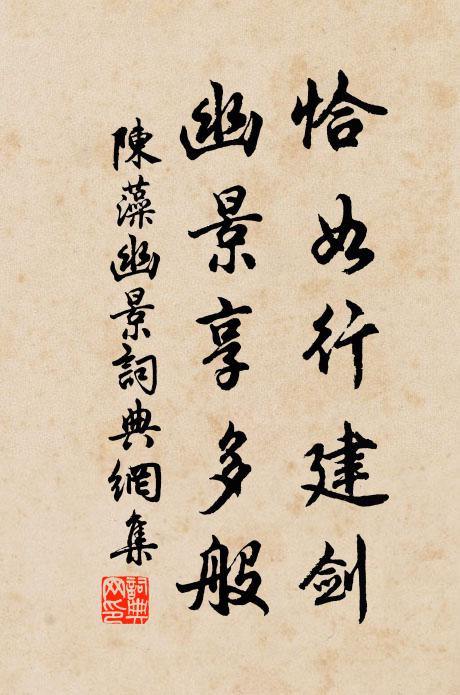 恰如行建劍
幽景享多般
陳藻幽景詞典網集
詞典网印